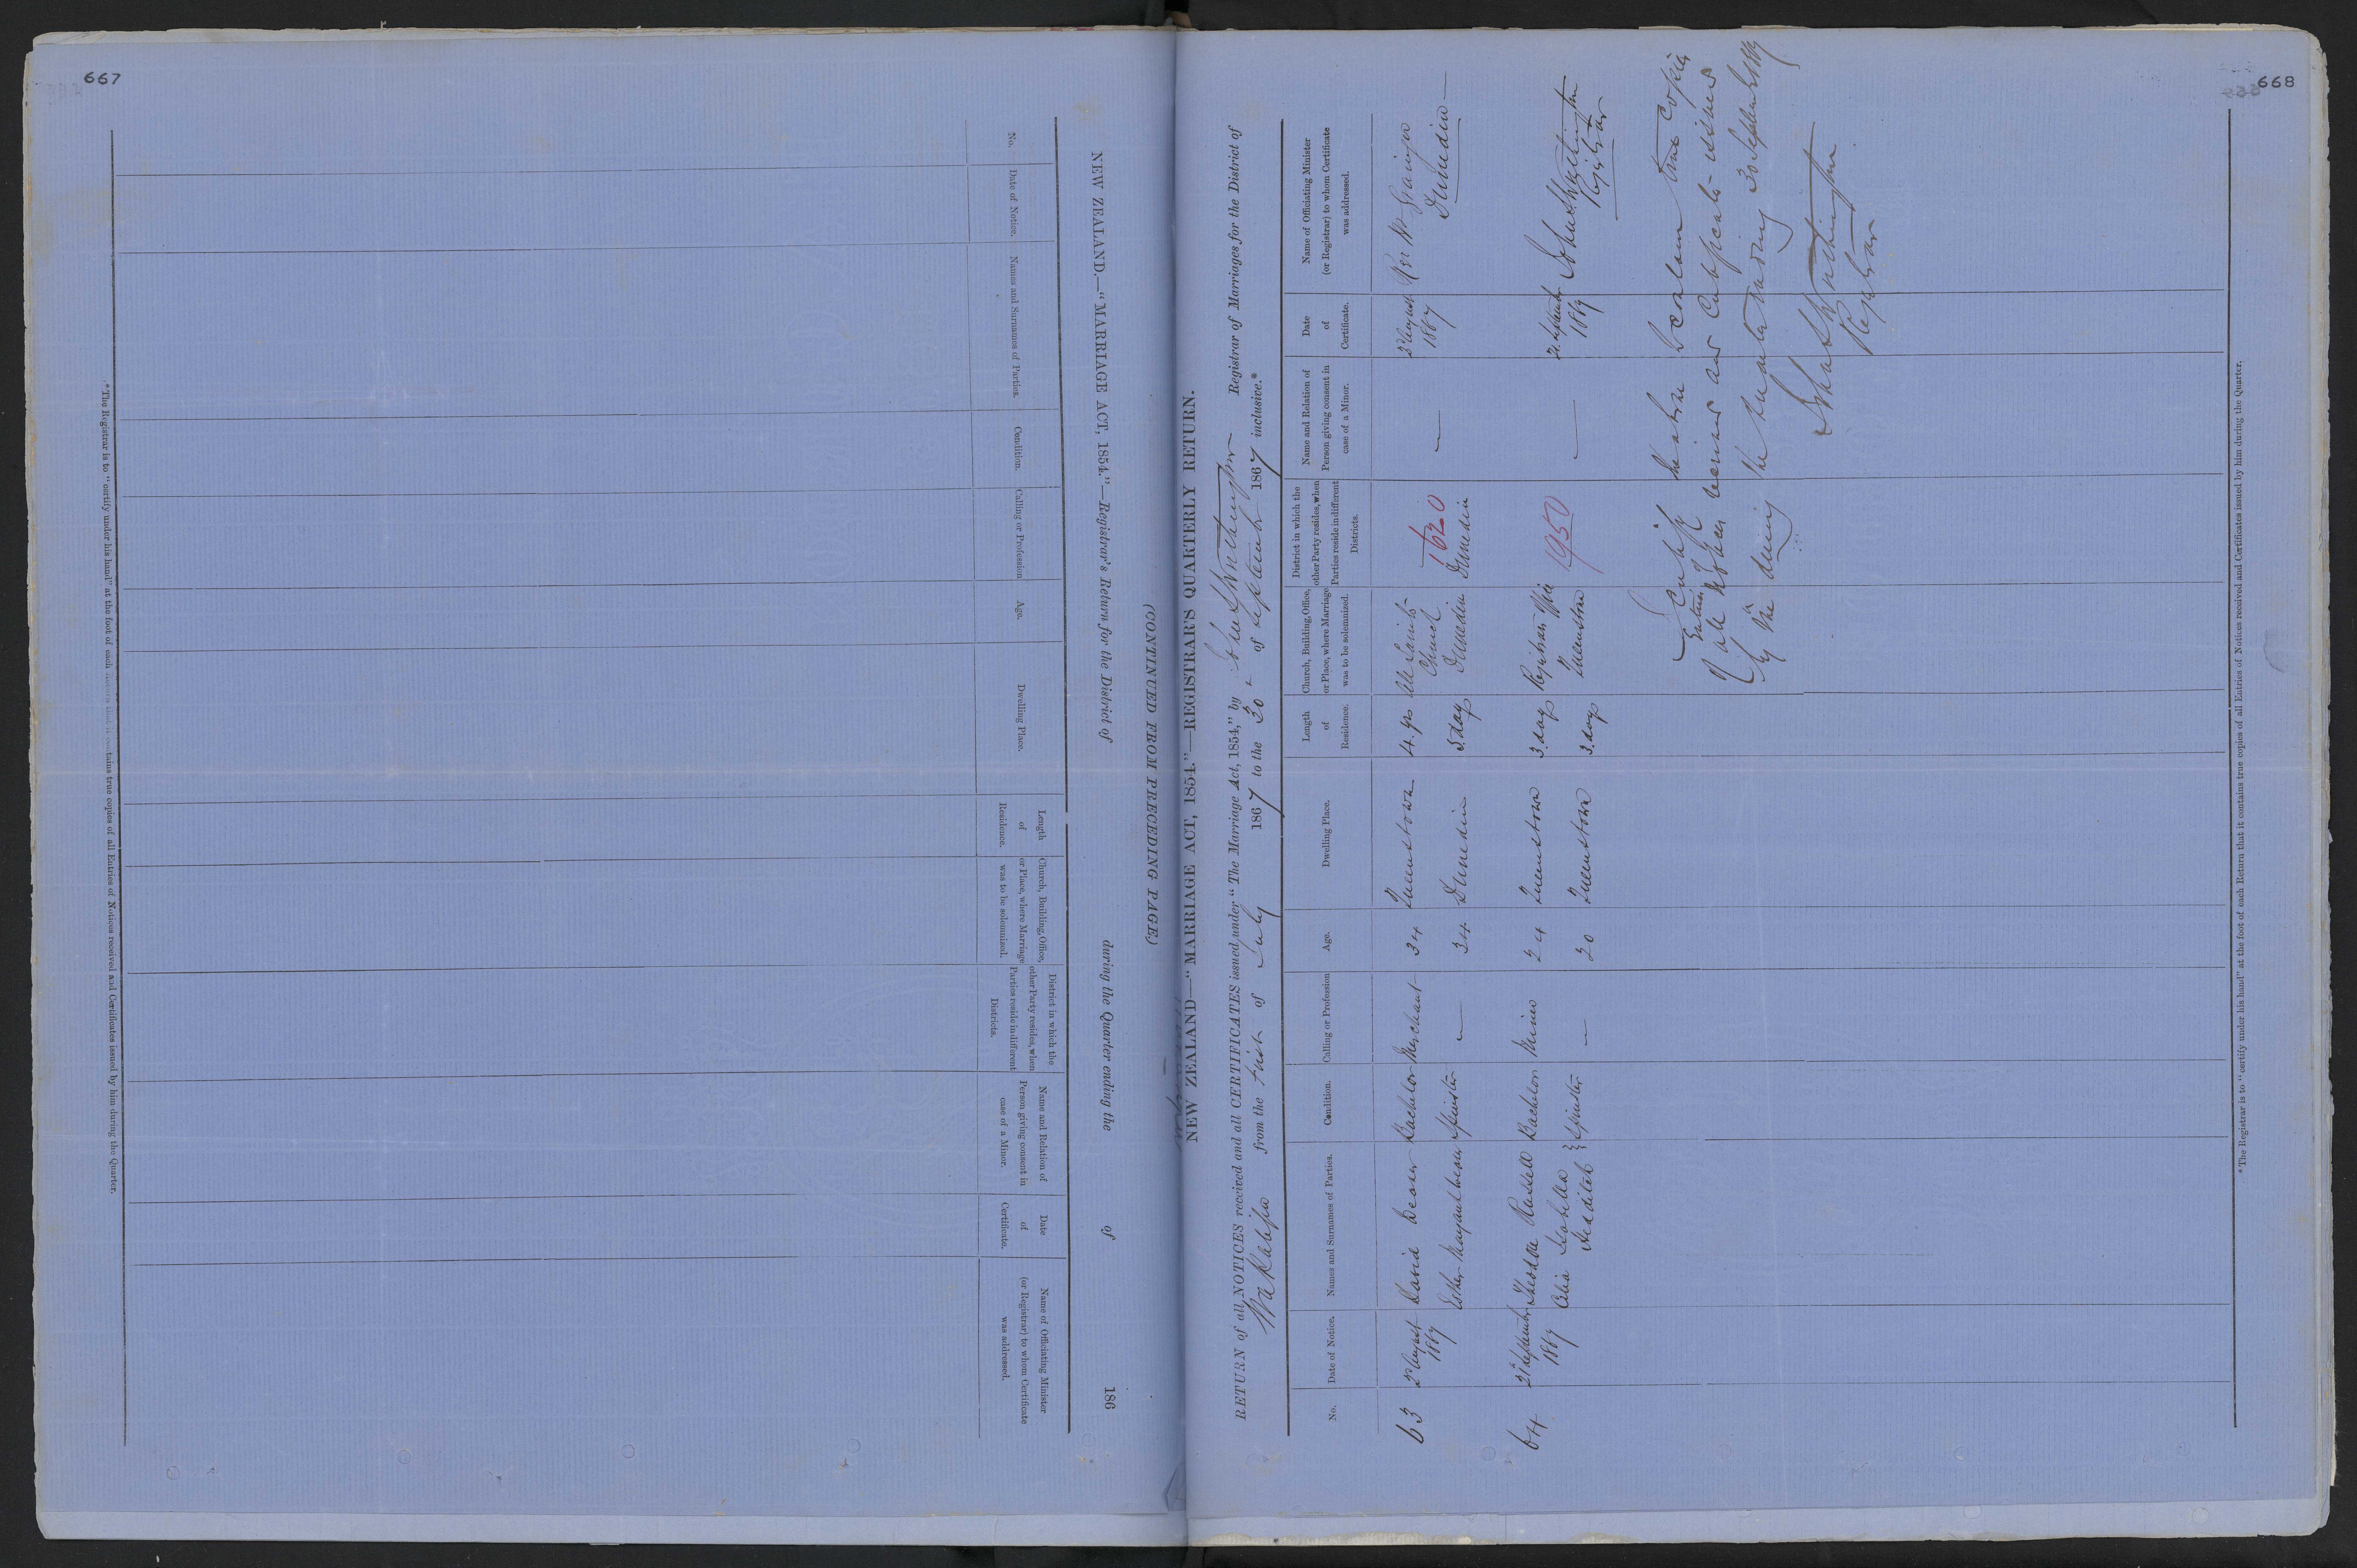 667
NEW ZEALAND.—"MARRIAGE ACT, 1854."—Registrar's Return for the District of during the Quarter ending the of 186
(CONTINUED FROM PRECEDING PAGE.)
No.
Date of Notice.
Names and Surnames of Parties.
Condition.
Calling or Profession
Age.
Dwelling Place.
Length
of
Residence.
Church, Building, Office,
or Place, where Marriage
was to be solemnized.
District in which the
other Party resides, when
Parties reside in different
Districts.
Name and Relation of
Person giving consent in
case of a Minor.
Date
of
Certificate.
Name of Officiating Minister
(or Registrar) to whom Certificate
was addressed.
*The Registrar is to "certify under his hand" at the foot of each Return that it contains true copies of all Entries of Notices received and Certificates issued by him during the Quarter.
668
NEW ZEALAND—"MARRIAGE ACT, 1854."—REGISTRAR'S QUARTERLY RETURN.
RETURN of all NOTICES received and all CERTIFICATES issued under "The Marriage Act, 1854," by Registrar of Marriages for the District of
from the first of July 1867 to the 30 of September 1867 inclusive.*
No.
Date of Notice.
Names and Surnames of Parties.
Condition.
Calling or Profession
Age.
Dwelling Place.
Length
of
Residence.
Church, Building, Office,
or Place, where Marriage
was to be solemnized.
District in which the
other Party resides, when
Parties reside in different
Districts.
Name and Relation of
Person giving consent in
case of a Minor.
Date
of
Certificate.
Name of Officiating Minister
(or Registrar) to whom Certificate
was addressed.
63
2d August
1867
David
Esther Margaret
Bachelor
Spinster
Merchant
—
34
34
Queenstown
Dunedin
4 yrs
5 days
All Saints
Church
Dunedin
1620
Dunedin
—
3d August
1867
Rev W Granger
Dunedin
64
21 September
1867
Theodore Russell
Celia Isabella
Bachelor
Spinster
Miner
—
24
20
Queenstown
Queenstown
3 days
3 days
Registrars Office
Queenstown
1950
—
21 September
1867
Registrar
I Certify the above to contain true copies
of all Entries of Notices received and Certificates issued
by me during the quarter ending 30 September 1867
Registrar
*The Registrar is to "certify under his hand" at the foot of each Return that it contains true copies of all Entries of Notices received and Certificates issued by him during the Quarter.